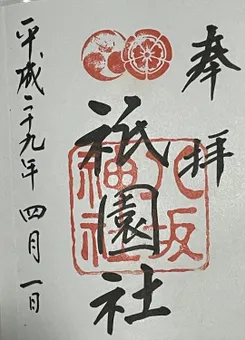 奉拝
八坂神社
祇園社
平成二十九年 四月 一日